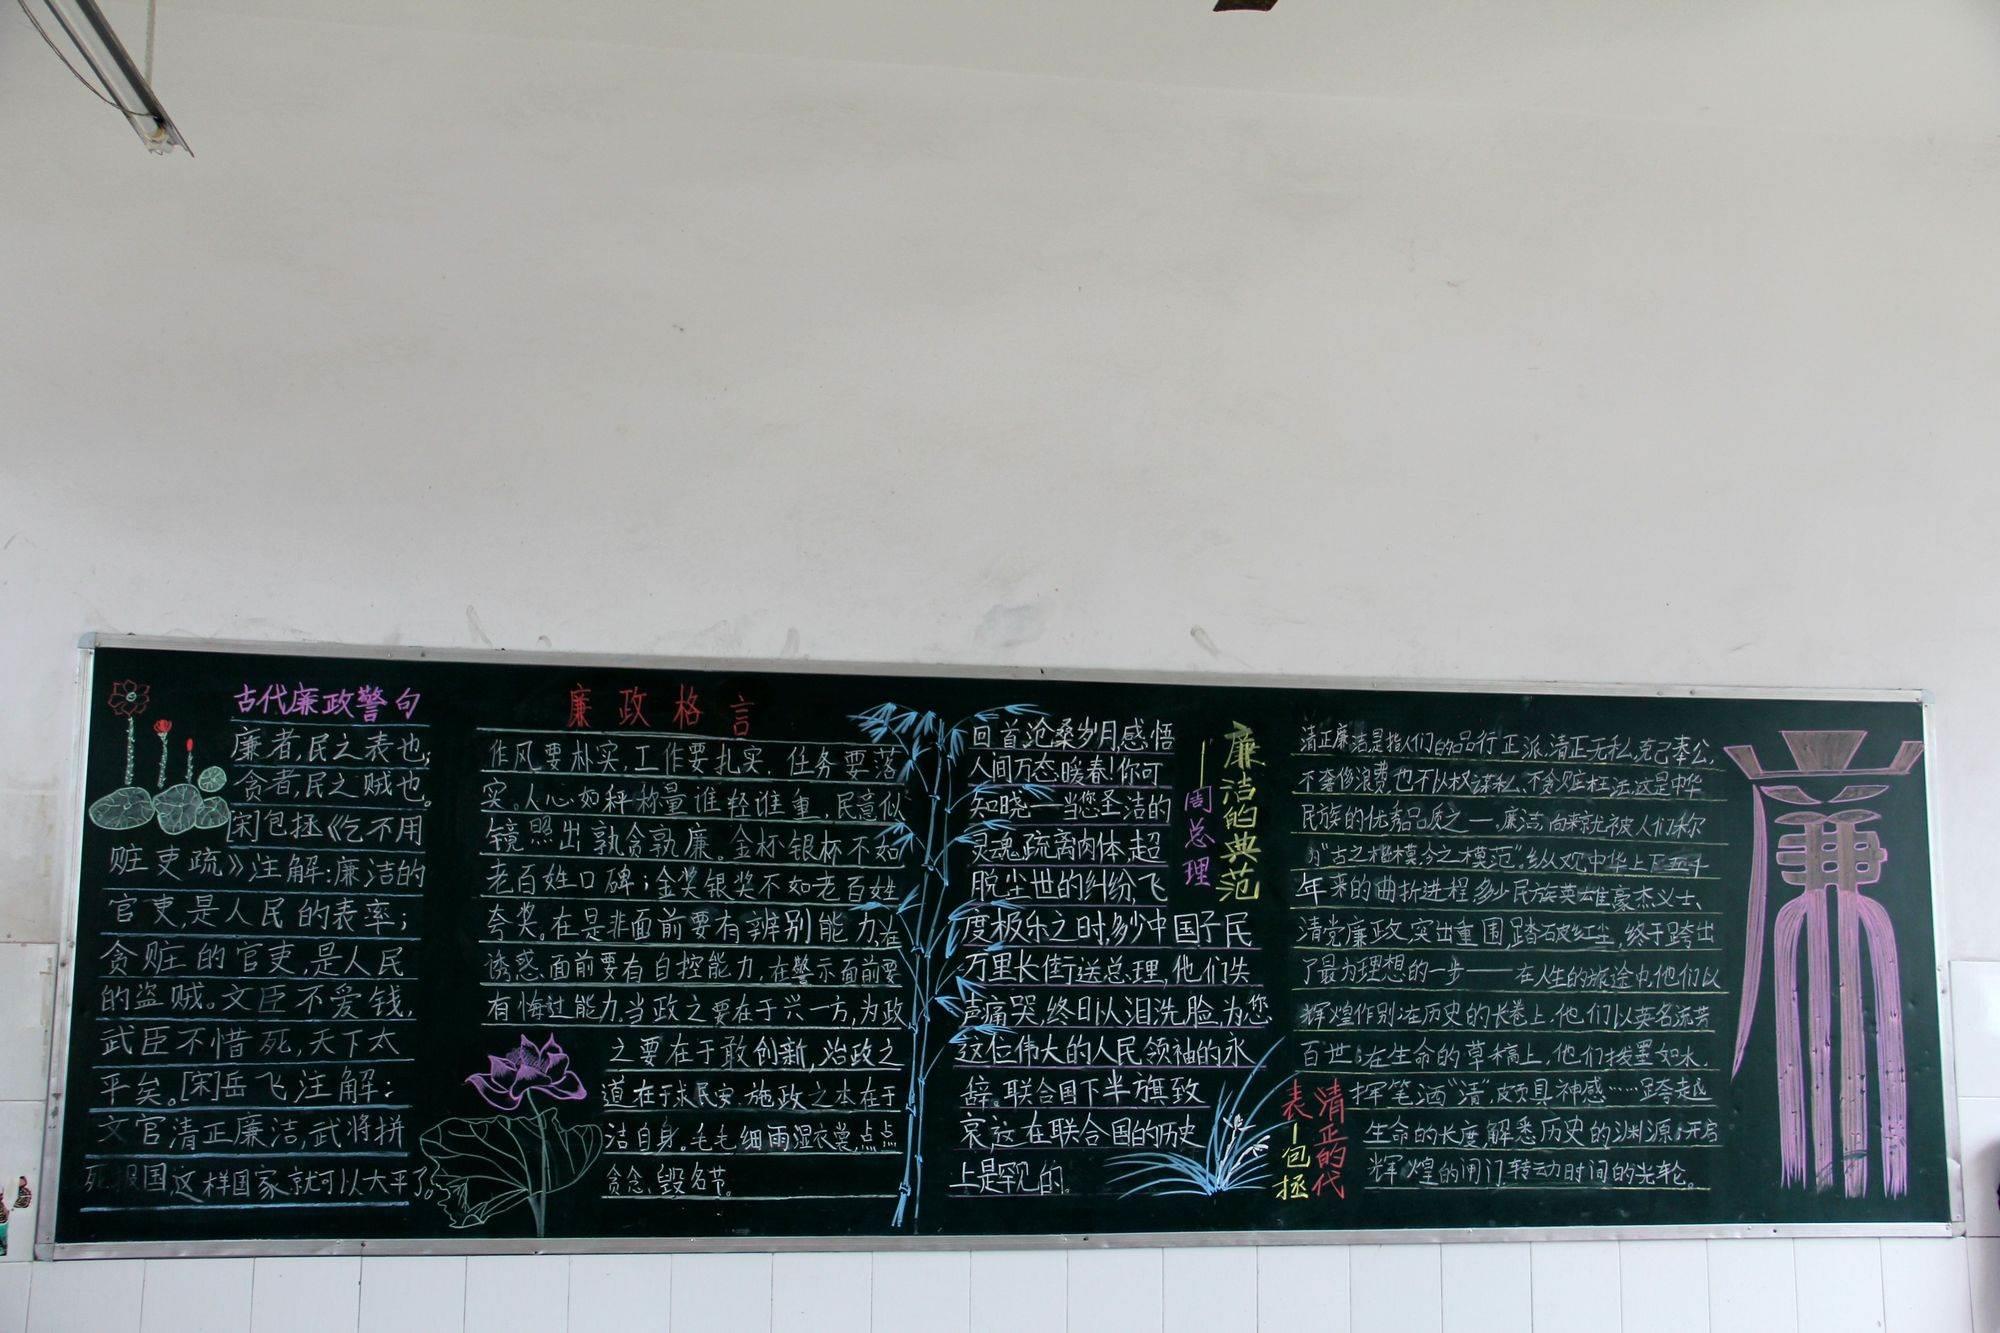 古代廉政警句
廉者,民之表也;
贪者,民之贼也。
[宋]包拯《乞不用
赃吏疏》注解:廉洁的
官吏,是人民的表率;
贪赃的官吏,是人民
的盗贼。文臣不爱钱,
武臣不惜死,天下太
平矣。[宋]岳飞注解:
文官清正廉洁,武将拼
死报国这样国家就可以太平了。
廉政格言
作风要朴实,工作要扎实,任务要落
实。人心如秤称量谁轻谁重,民意似
镜照出孰贪孰廉。金杯银杯不如
老百姓口碑;金奖银奖不如老百姓
夸奖。在是非面前要有辨别能力,在
诱惑面前要有自控能力,在警示面前要
有悔过能力。当政之要在于兴一方,为政
之要在于敢创新,治政之
道在于求民安,施政之本在于
洁自身。毛毛细雨湿衣裳,点点
贪念、毁名节。
廉洁的典范
——周总理
回首沧桑岁月,感悟
人间万态暖春!你可
知晓——当您圣洁的
灵魂疏离肉体,超
脱尘世的纠纷,飞
度极乐之时,多少中国子民
万里长街送总理,他们失
声痛哭,终日以泪洗脸,为您
这位伟大的人民领袖的永
辞。联合国下半旗致
哀,这在联合国的历史
上是罕见的。
清正的代
表—包拯
清正廉洁,是指人们的品行正派、清正无私,克己奉公,
不奢侈浪费,也不以权谋私、不贪赃枉法,这是中华
民族的优秀品质之一,廉洁,向来就被人们称
为"古之楷模,今之模范"。纵观中华上下五千
年来的曲折进程,多少民族英雄豪杰义士、
清党廉政,突出重围,踏破红尘,终于跨出
了最为理想的一步——在人生的旅途中,他们以
辉煌作别;在历史的长卷上,他们以英名流芳
百世;在生命的草稿上,他们
挥笔洒"清",颇具神感……跨越
生命的长度,解悉历史的渊源;开启
辉煌的闸门,转动时间的光轮。
廉